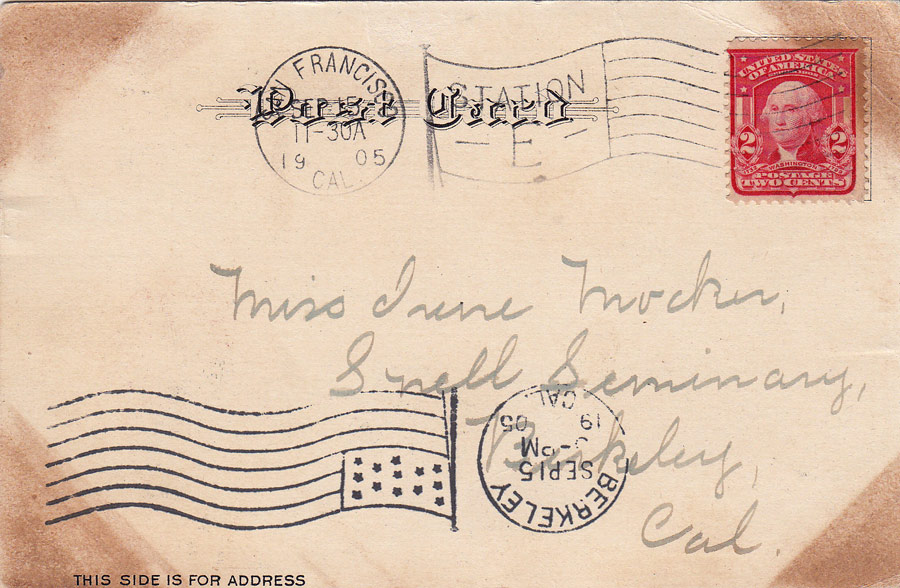 SAN FRANCISCO
SEP 15
11-30A
19 05
CAL.
Post Card
STATION
E
UNITED STATES
OF AMERICA
2 2
WASHINGTON
POSTAGE
TWO CENTS
Miss Irene Mocker,
Snell Seminary,
Berkeley,
Cal.
BERKELEY
SEP 15
M
19 05
CAL
THIS SIDE IS FOR ADDRESS